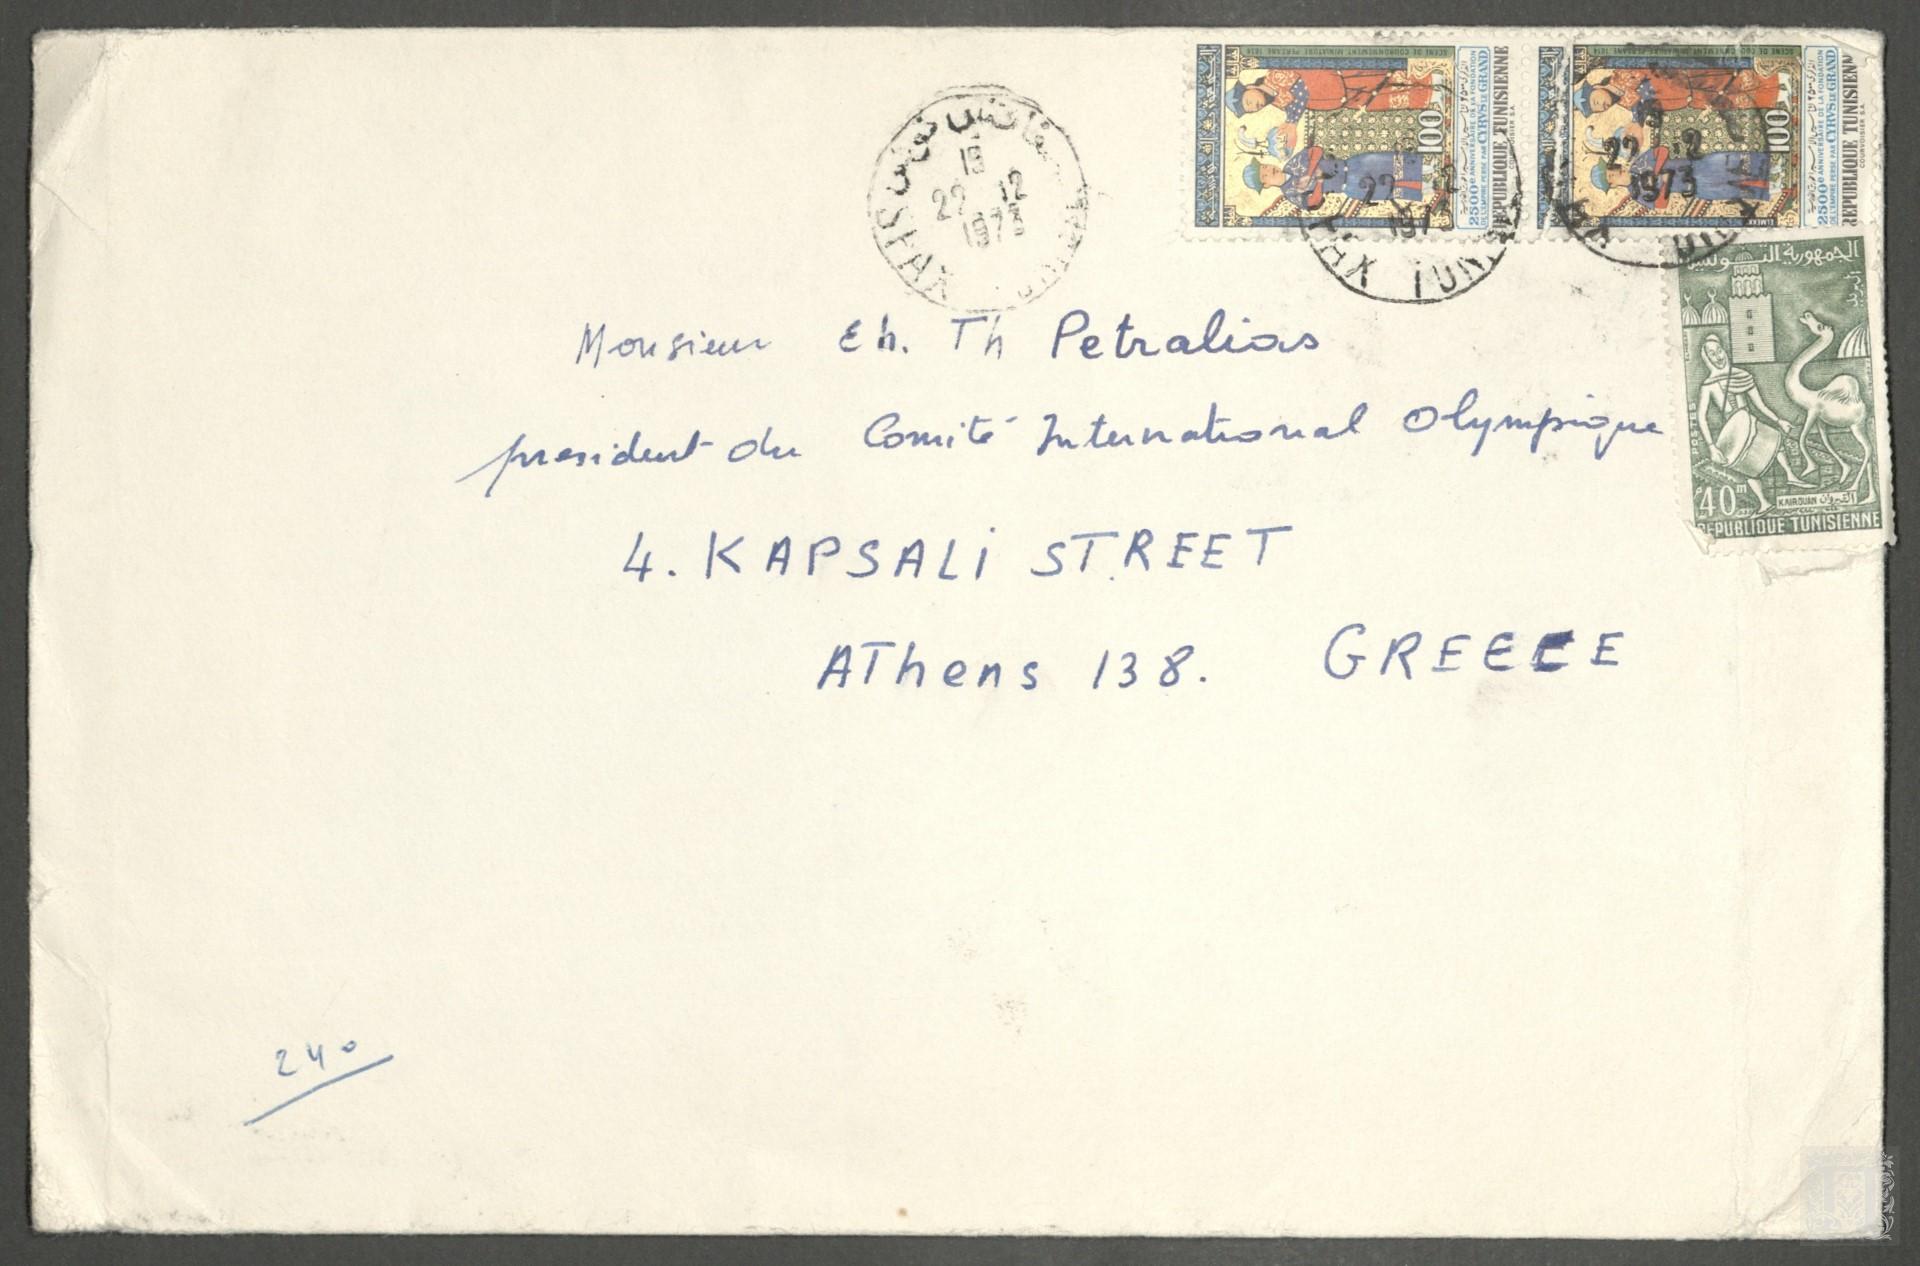 صفاقس تونس
19
22 12
1973
SFAX
SCENE DE COURONNEMENT MINIATURE PERSANE 1614
100
2500e ANNIVERSAIRE DE LA FONDATION
DE L'EMPIRE PERSE PAR CYRUS LE GRAND
REPUBLIQUE TUNISIENNE
COURVOISIER S.A.
22 12
SFAX TUNI
100
2500e ANNIVERSAIRE DE LA FONDATION
DE L'EMPIRE PERSE PAR CYRUS LE GRAND
REPUBLIQUE TUNISIENNE
COURVOISIER S.A.
22 12
1973
الجمهورية التونسية
البريد
POSTES
40m
KAIROUAN القيروان
REPUBLIQUE TUNISIENNE
Monsieur Eh. Th Petralias
president du Comité International Olympique
4. KAPSALi STREET
AThens 138. GREECE
240